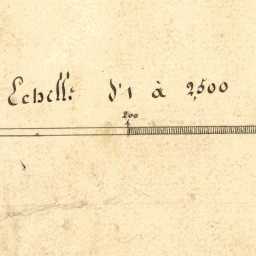 Echelle d'1 à 2500
200